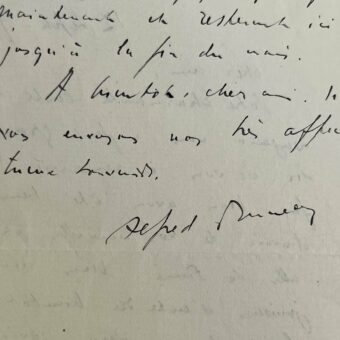 maintenant et resterons ici
jusqu'à la fin du mois.
A bientôt, cher ami. N
vous envoyons nos très affec
tueux souvenirs.
Alfred Bruneau